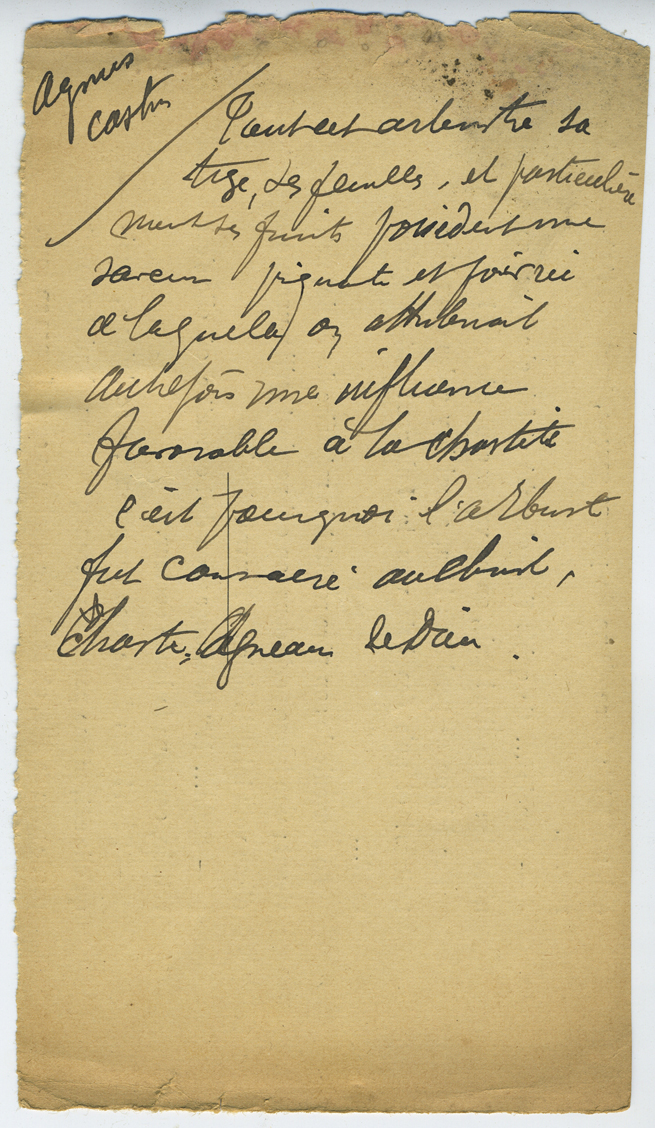 Agnus
castus
Tout cet arbustre sa
tige, ses feuilles, et particulière
ment ses fruits possèdent une
saveur piquante et poivrée
à laquelle on attribuait
autrefois une influence
favorable à la chasteté
c'est pourquoi l'arbust
fut consacré
Chaste, Agneau de Dieu.